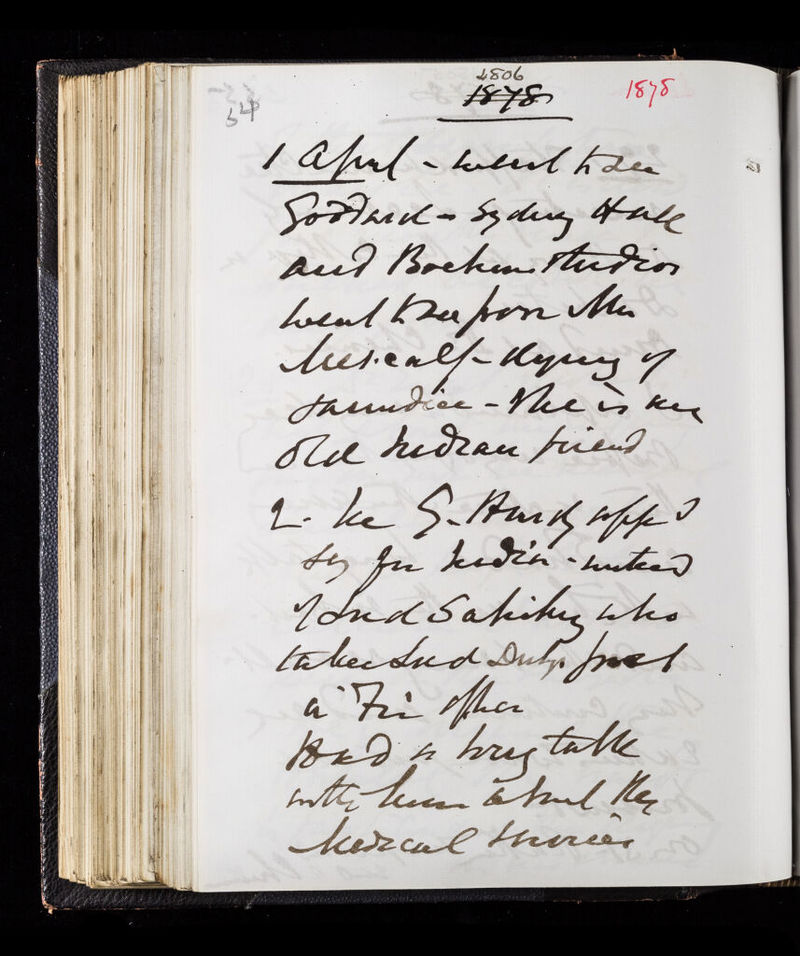 4806
1878
1878
54
1 April - went to see
Goddard - Sydney Hall
and Boehm studios
went to see poor Mrs
Metcalf - dying of
Jaundice - She is an
old Indian friend
2. Mr G. Hardy app d
Sey for India - instead
of Lord Salisbury who
takes Lord Derby's post
in For office
Had a long talk
with him about the
Medical Services